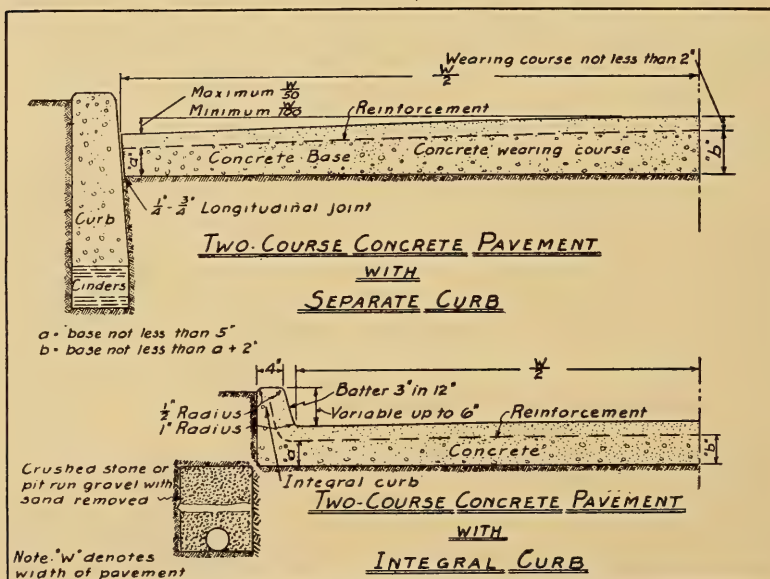 Wearing course not less than 2"
W/2
Maximum W/50
Minimum W/100
Reinforcement
"a"
Concrete Base
Concrete wearing course
"b"
1/4" - 3/4" Longitudinal joint
Curb
Cinders
TWO-COURSE CONCRETE PAVEMENT
WITH
SEPARATE CURB
a = base not less than 5"
b = base not less than a + 2"
4"
W/2
Batter 3" in 12"
1/2" Radius
Variable up to 6"
1" Radius
Reinforcement
"a"
Concrete
"b"
Integral curb
Crushed stone or
pit run gravel with
sand removed
TWO-COURSE CONCRETE PAVEMENT
WITH
INTEGRAL CURB
Note-"W" denotes
width of pavement